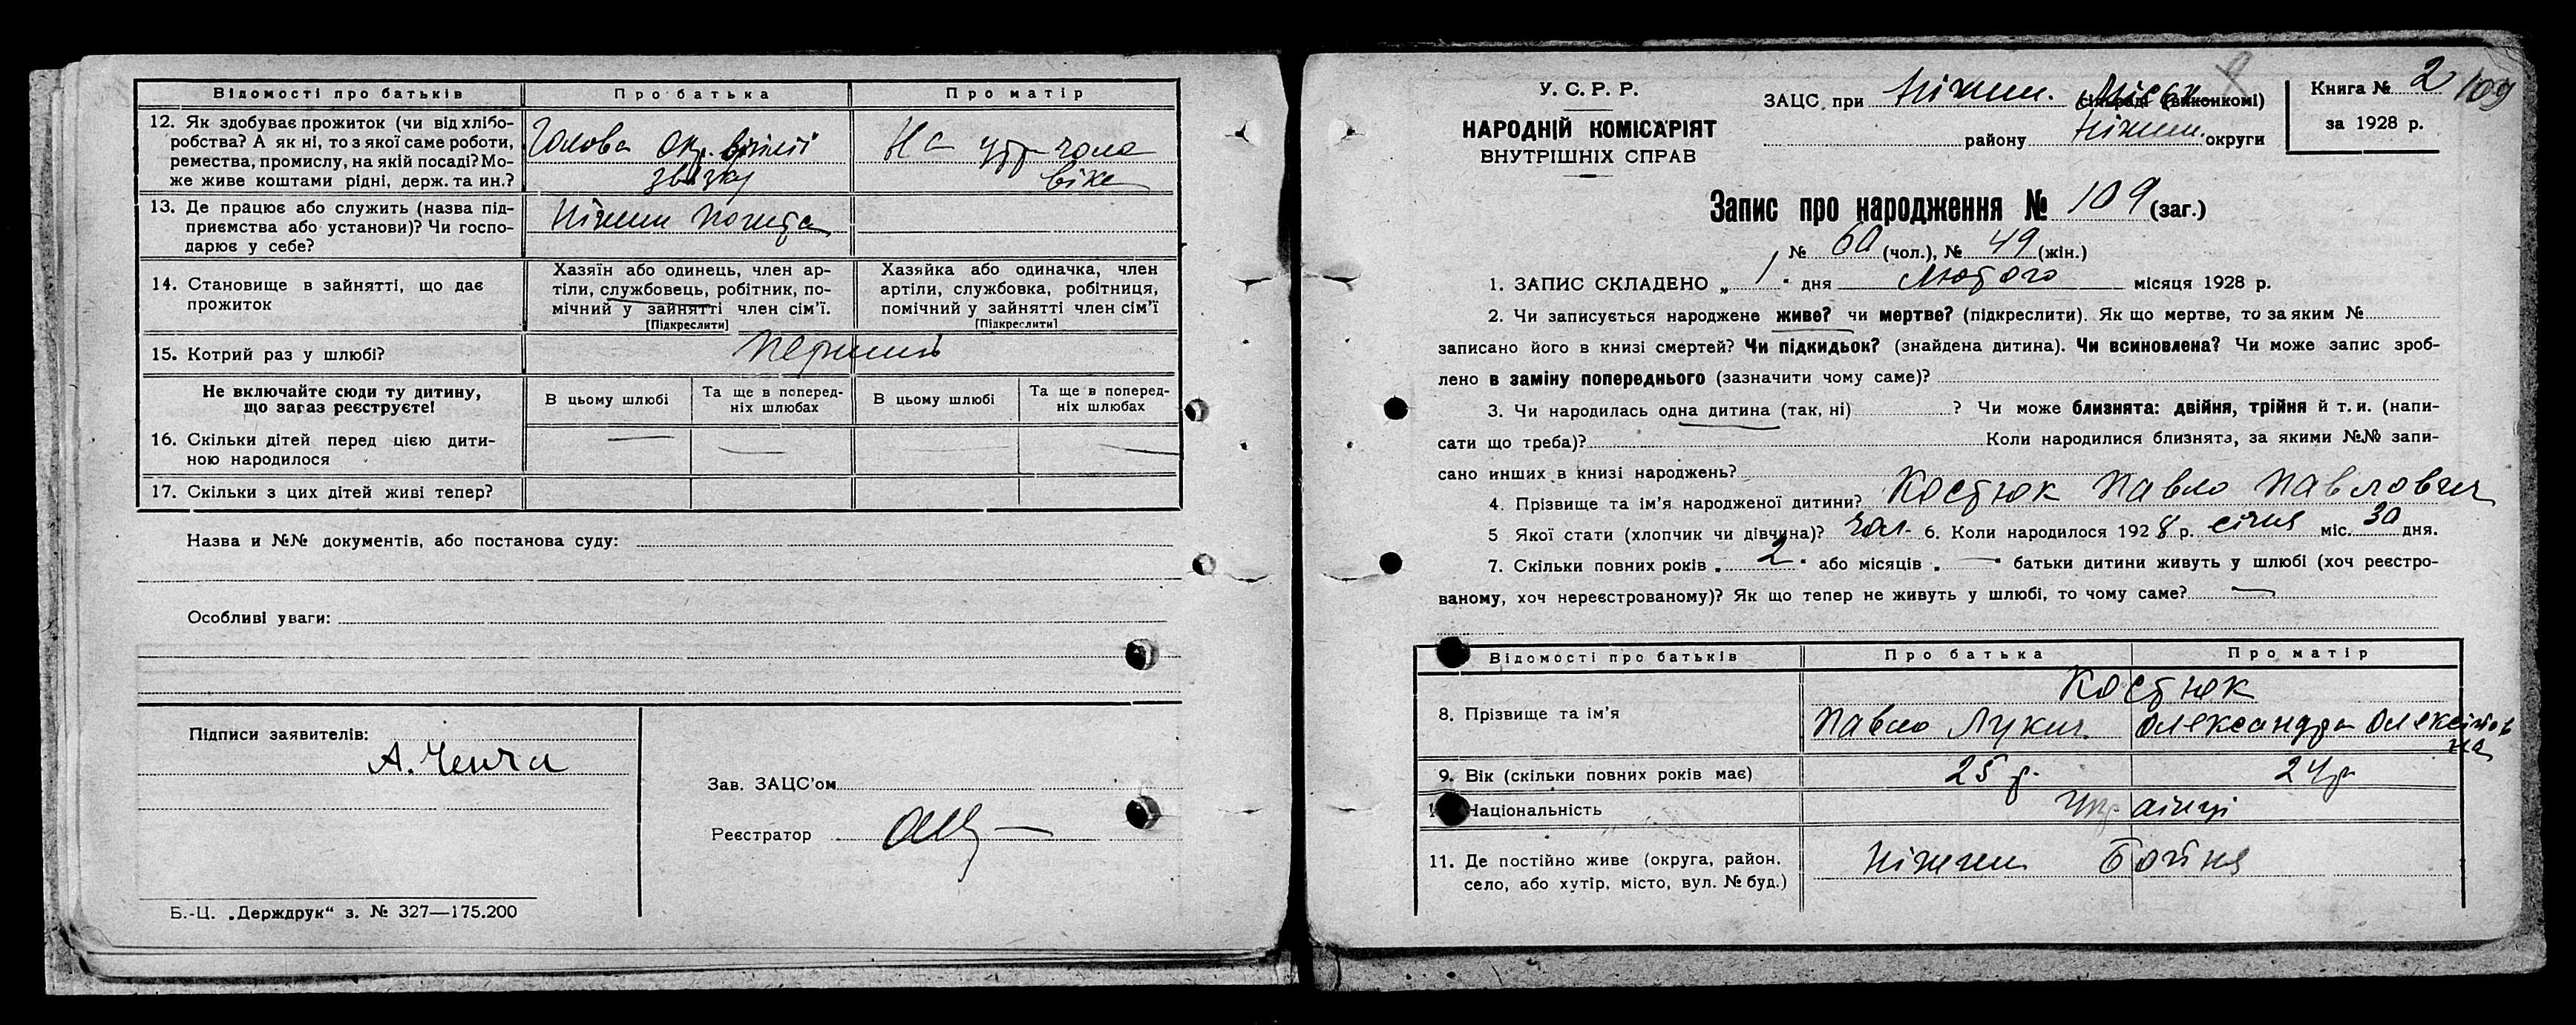 Відомості про батьків
Про батька
Про матір
12. Як здобуває прожиток (чи від хлібо-
робства? А як ні, то з якої саме роботи,
ремества, промислу, на якій посаді? Мо-
же живе коштами рідні, держ. та ин.?
Голова Окр.
звязку
На утр чоло
віка
13. Де працює або служить (назва під-
приємства або установи)? Чи госпо-
дарює у себе?
Ніжин почта
14. Становище в зайнятті, що дає
прожиток
Хазяїн або одинець, член ар-
тіли, службовець, робітник, по-
мічний у зайнятті член сім'ї.
[Підкреслити]
Хазяйка або одиначка, член
артіли, службовка, робітниця,
помічний у зайнятті член сім'ї
[Підкреслити]
15. Котрий раз у шлюбі?
Перший
Не включайте сюди ту дитину,
що зараз реєструєте!
В цьому шлюбі
Та ще в поперед-
ніх шлюбах
В цьому шлюбі
Та ще в поперед-
ніх шлюбах
16. Скільки дітей перед цією дити-
ною народилося
17. Скільки з цих дітей живі тепер?
Назва и №№ документів, або постанова суду:
Особливі уваги:
Підписи заявителів:
А.
Зав. ЗАЦС'ом
Реєстратор
Б.-Ц. „Держдрук“ з. № 327—175.200
У. С. Р. Р.
НАРОДНІЙ КОМІСАРІЯТ
ВНУТРІШНІХ СПРАВ
ЗАЦС при Ніжин. Міськ сільраді (виконкомі)
району Ніжин. округи
Книга № 2
за 1928 р.
109
Запис про народження № 109 (заг.)
№ 60 (чол.), № 49 (жін.)
1. ЗАПИС СКЛАДЕНО „ 1 “ дня Лютого місяця 1928 р.
2. Чи записується народжене живе? чи мертве? (підкреслити). Як що мертве, то за яким №
записано його в книзі смертей? Чи підкидьок? (знайдена дитина). Чи всиновлена? Чи може запис зроб-
лено в заміну попереднього (зазначити чому саме)?
3. Чи народилась одна дитина (так, ні) ? Чи може близнята: двійня, трійня й т. и. (напи-
сати що треба)? Коли народилися близнята, за якими №№ запи-
сано инших в книзі народжень?
4. Прізвище та ім'я народженої дитини? Костюк Павло Павлович
5 Якої стати (хлопчик чи дівчина)? Чол. 6. Коли народилося 1928 р. січня міс. 30 дня.
7. Скільки повних років „ 2 “ або місяців „ — “ батьки дитини живуть у шлюбі (хоч реєстро-
ваному, хоч нереєстрованому)? Як що тепер не живуть у шлюбі, то чому саме? —
Відомості про батьків
Про батька
Про матір
8. Прізвище та ім'я
Костюк
Павло Лукич
Олександра Олексіїв
на
9. Вік (скільки повних років має)
25 р.
24 р.
Національність
Українці
11. Де постійно живе (округа, район,
село, або хутір, місто, вул. № буд.)
Ніжин Бойня